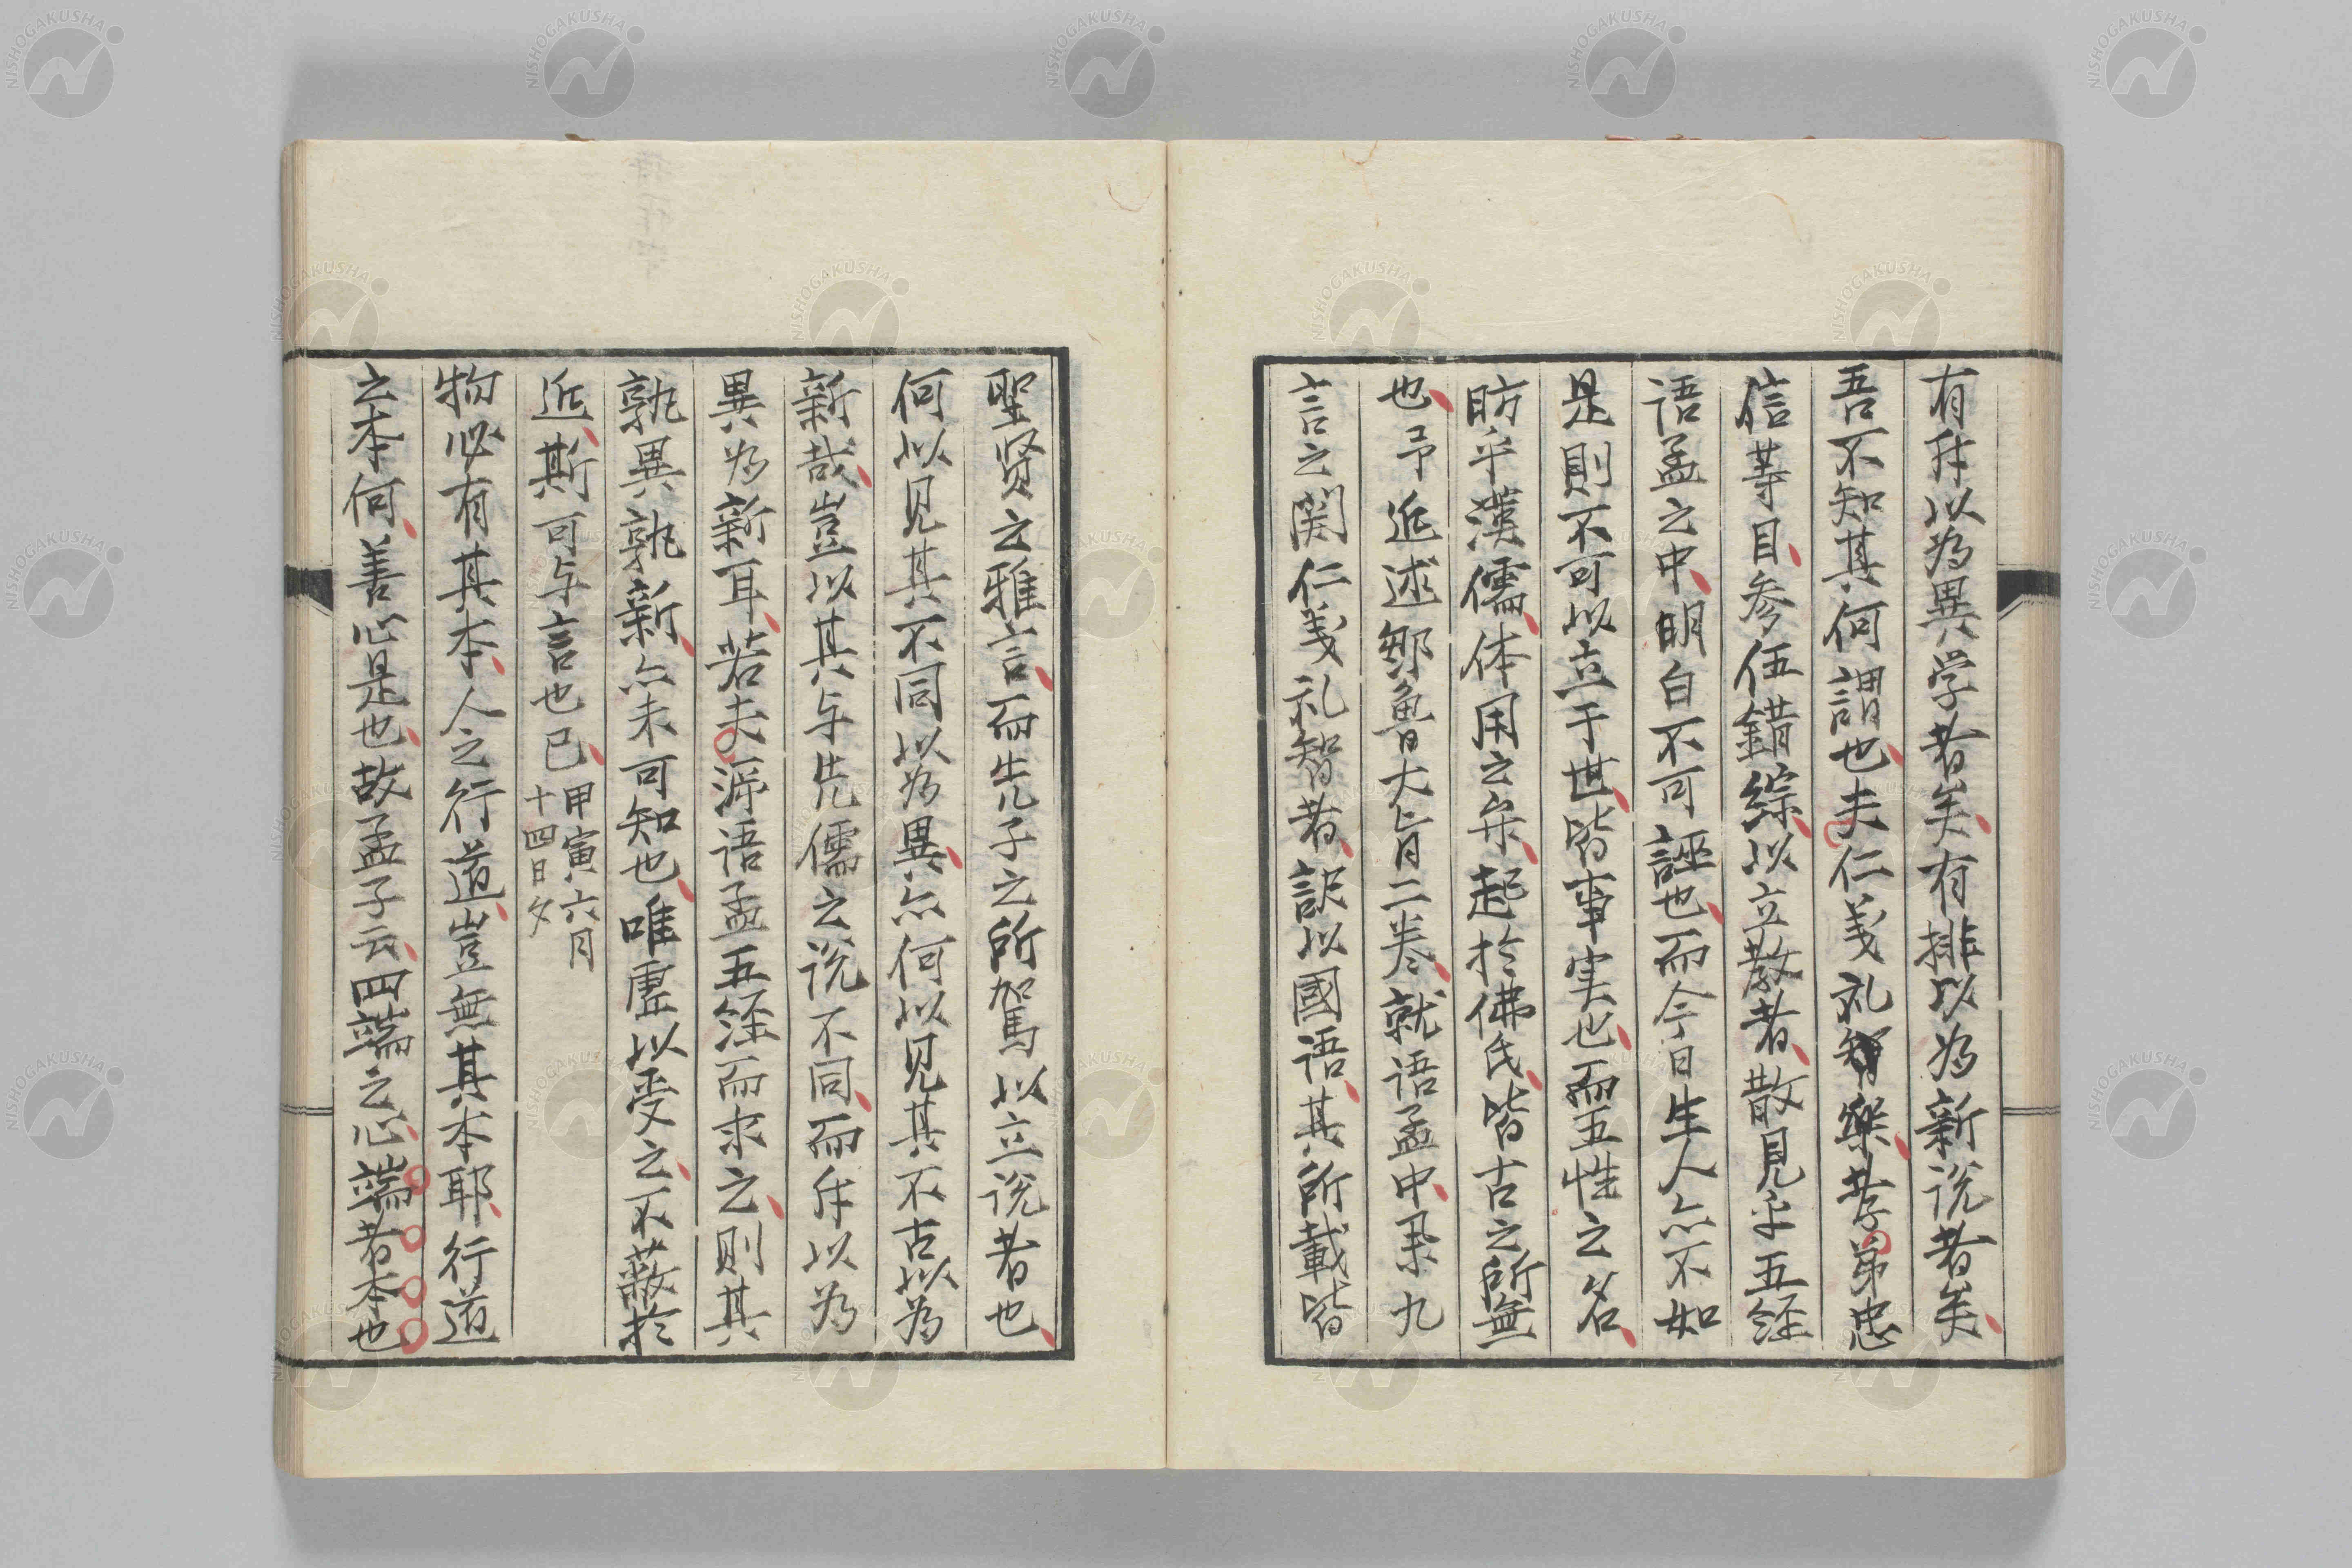 有斥以為異学者矣有排以為新説者矣
吾不知其何謂也夫仁義礼智樂孝弟忠
信等目参伍錯綜以立教者散見乎五経
语孟之中明白不可誣也而今日生人亦不如
是則不可以立于世皆事実也而五性之名
昉乎漢儒体用之
起於佛氏皆古之所無
也予近述鄒魯大旨二巻就语孟中
九
言之関仁義礼智者訳以國语其所載皆
聖贤之雅言而先子之所駕以立説者也
何以见其不同以為異亦何以见其不古以為
新哉豈以其与先儒之説不同而斥以為
異为新耳若夫
语孟五経而求之則其
孰異孰新亦未可知也唯虚以受之不蔽於
近斯可与言也已 甲寅六月
十四日夕
物必有其本人之行道豈無其本耶行道
之本何善心是也故孟子云四端之心端者本也
NISHOGAKUSHA